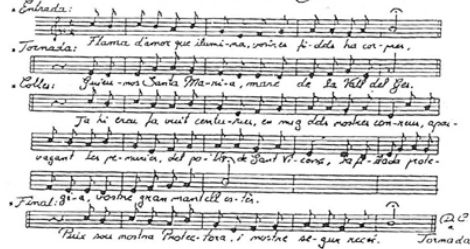 Entrada:
Flama d'amor que ilumi-na, vos-tres fi-dels ha cor-pres.
Tornada:
Guieu-nos Santa Ma-ri-a, mare de la Vall del Ges.
Cobles:
Ja hi creu fa vuit centu-ries, en mig dels nostres con-reus, apai-
vagant les pe-nuries, del po- de Sant Vi-cens, prote-
gi-a, vostre gran mantell es-tès.
Final:
Puix sou nostra Protec-tora, i nostre se-gur recer.
(D.C.
a
Tornada